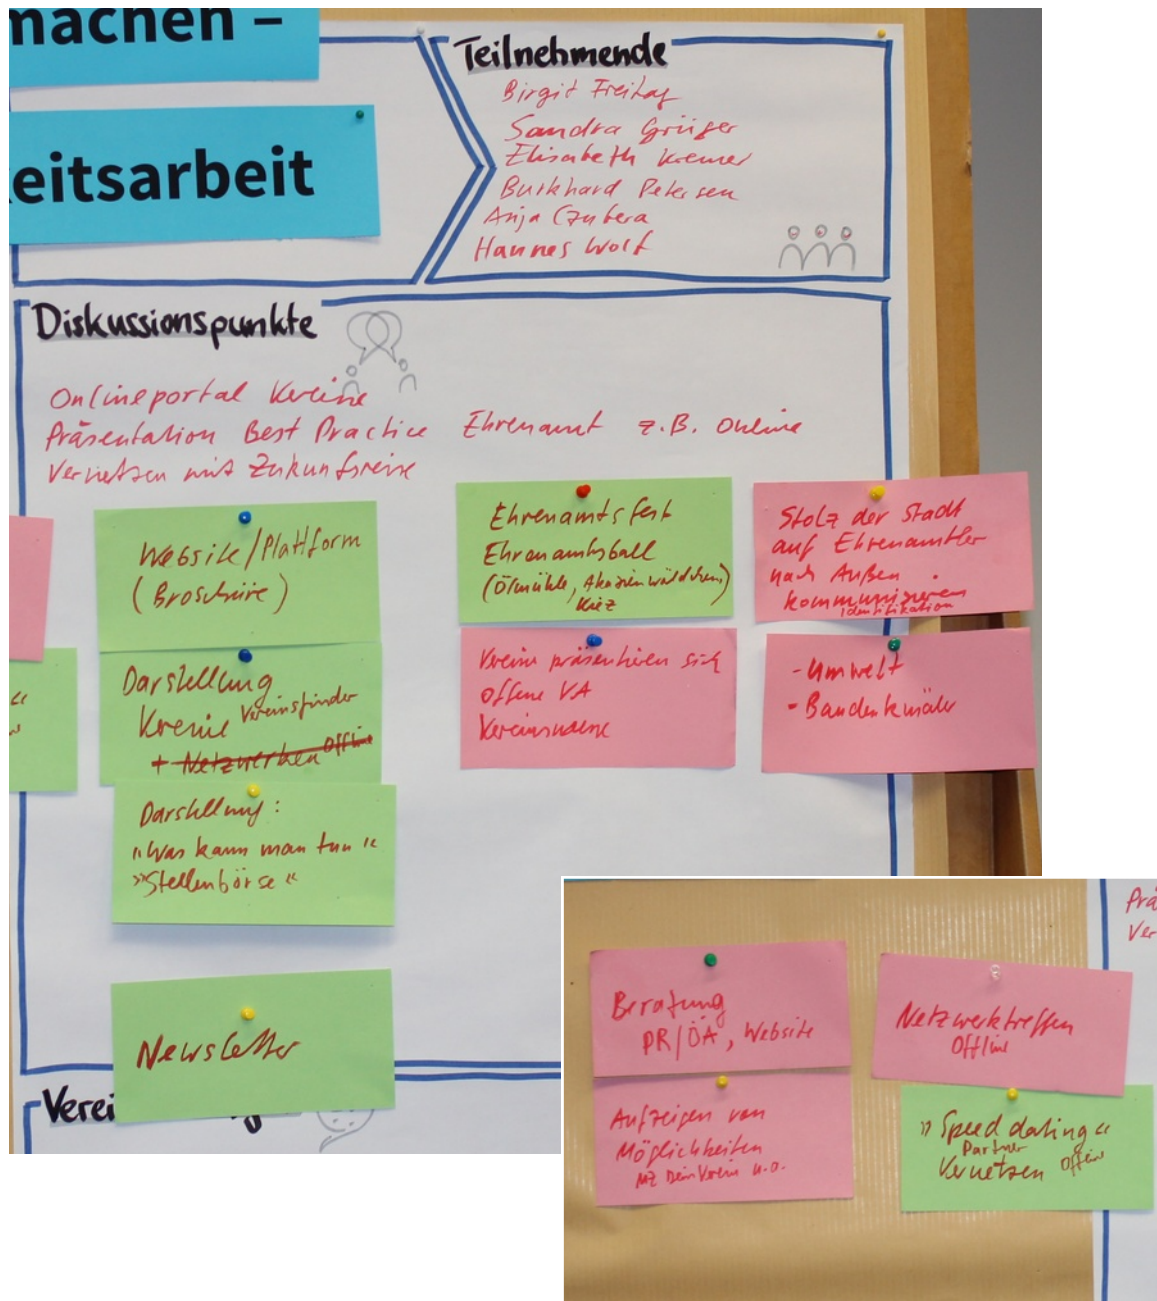 machen –
eitsarbeit
Teilnehmende
Birgit Freitag
Sandra Grüger
Elisabeth Kremer
Burkhard Petersen
Anja Czubera
Hannes Wolf
Diskussionspunkte
Onlineportal Vereine
Präsentation Best Practice Ehrenamt z.B. Online
Vernetzen mit Zukunfsreise
Website/Plattform
(Broschüre)
Darstellung
Vereine Vereinsfinder
+ Netzwerken Offline
Darstellung:
"Was kann man tun"
"Stellenbörse"
Newsletter
Ehrenamtsfest
Ehrenamtsball
(Ölmühle, Akazienwäldchen,)
Kiez
Vereine präsentieren sich
offene VA
Stolz der Stadt
auf Ehrenamtler
nach Außen
kommunizieren
Identifikation
- Umwelt
- Baudenkmäler
Verei
Beratung
PR/ÖA, Website
Aufzeigen von
Möglichkeiten
MZ Dein Verein u.a.
Netzwerktreffen
Offline
"Speed dating"
Partner
Vernetzen Offline
Prä
Ver